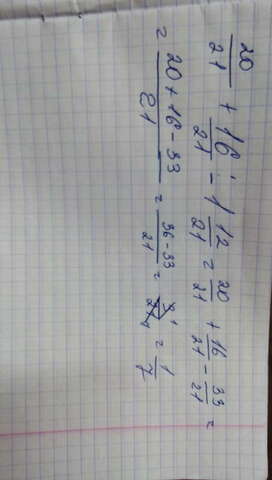 20/21 + 16/21 - 1 12/21 = 20/21 + 16/21 - 33/21 =
= 20+16-33/21 = 36-33/21 = 3/21 = 1/7